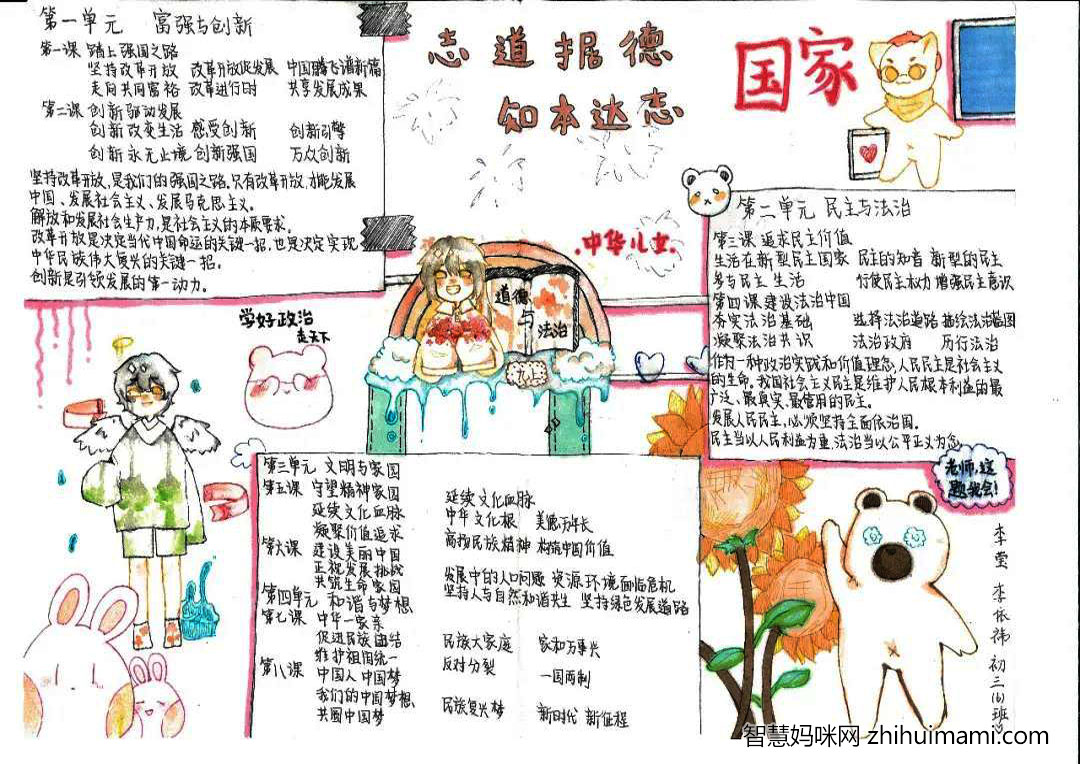 第一单元 富强与创新
第一课 踏上强国之路
坚持改革开放 改革开放促发展 中国腾飞谱新篇
走向共同富裕 改革进行时 共享发展成果
第二课 创新驱动发展
创新改变生活 感受创新 创新引擎
创新永无止境 创新强国 万众创新
坚持改革开放,是我们的强国之路。只有改革开放,才能发展
中国、发展社会主义、发展马克思主义。
解放和发展社会生产力,是社会主义的本质要求。
改革开放是决定当代中国命运的关键一招,也是决定实现
中华民族伟大复兴的关键一招。
创新是引领发展的第一动力。
志道据德
知本达志
国家
中华儿女
道德
与
法治
学好政治
走天下
第二单元 民主与法治
第三课 追求民主价值
生活在新型民主国家 民主的知音 新型的民主
参与民主生活 行使民主权力 增强民主意识
第四课 建设法治中国
夯实法治基础 选择法治道路 描绘法治蓝图
凝聚法治共识 法治政府 厉行法治
作为一种政治实践和价值理念,人民民主是社会主义
的生命。我国社会主义民主是维护人民根本利益的最
广泛、最真实、最管用的民主。
发展人民民主,必须坚持全面依法治国。
民主当以人民利益为重,法治当以公平正义为念
老师,这
题我会!
第三单元 文明与家园
第五课 守望精神家园
延续文化血脉 延续文化血脉
中华文化根 美德万年长
凝聚价值追求 高扬民族精神 构筑中国价值
第六课 建设美丽中国
正视发展挑战 发展中的人口问题 资源环境面临危机
共筑生命家园 坚持人与自然和谐共生 坚持绿色发展道路
第四单元 和谐与梦想
第七课 中华一家亲
促进民族团结 民族大家庭 家和万事兴
维护祖国统一 反对分裂 一国两制
第八课 中国人 中国梦
我们的中国梦想、
共圆中国梦 民族复兴梦 新时代 新征程
李莹 李依祎 初三(6)班
智慧妈咪网 zhihuimami.com